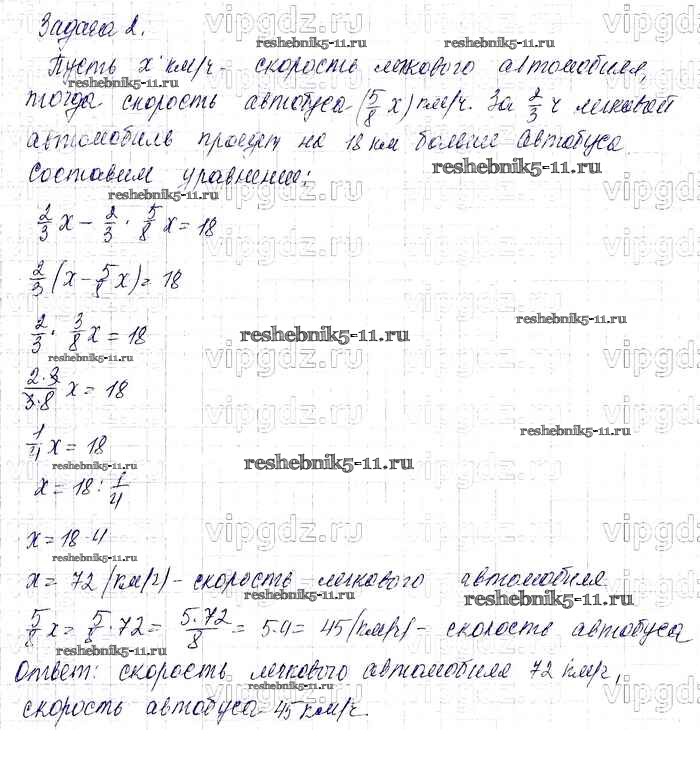 Задача 2.
Пусть x км/ч - скорость легкового автомобиля,
тогда скорость автобуса (5/8 x) км/ч. За 2/3 ч легковой
автомобиль проедет на 18 км больше автобуса.
Составим уравнение:
2/3 x - 2/3 · 5/8 x = 18
2/3 (x - 5/8 x) = 18
2/3 · 3/8 x = 18
2·3/3·8 x = 18
1/4 x = 18
x = 18 : 1/4
x = 18·4
x = 72 (км/ч) - скорость легкового автомобиля
5/8 x = 5/8 · 72 = 5·72/8 = 5·9 = 45 (км/ч) - скорость автобуса
Ответ: скорость легкового автомобиля 72 км/ч,
скорость автобуса - 45 км/ч.
vipgdz.ru
reshebnik5-11.ru